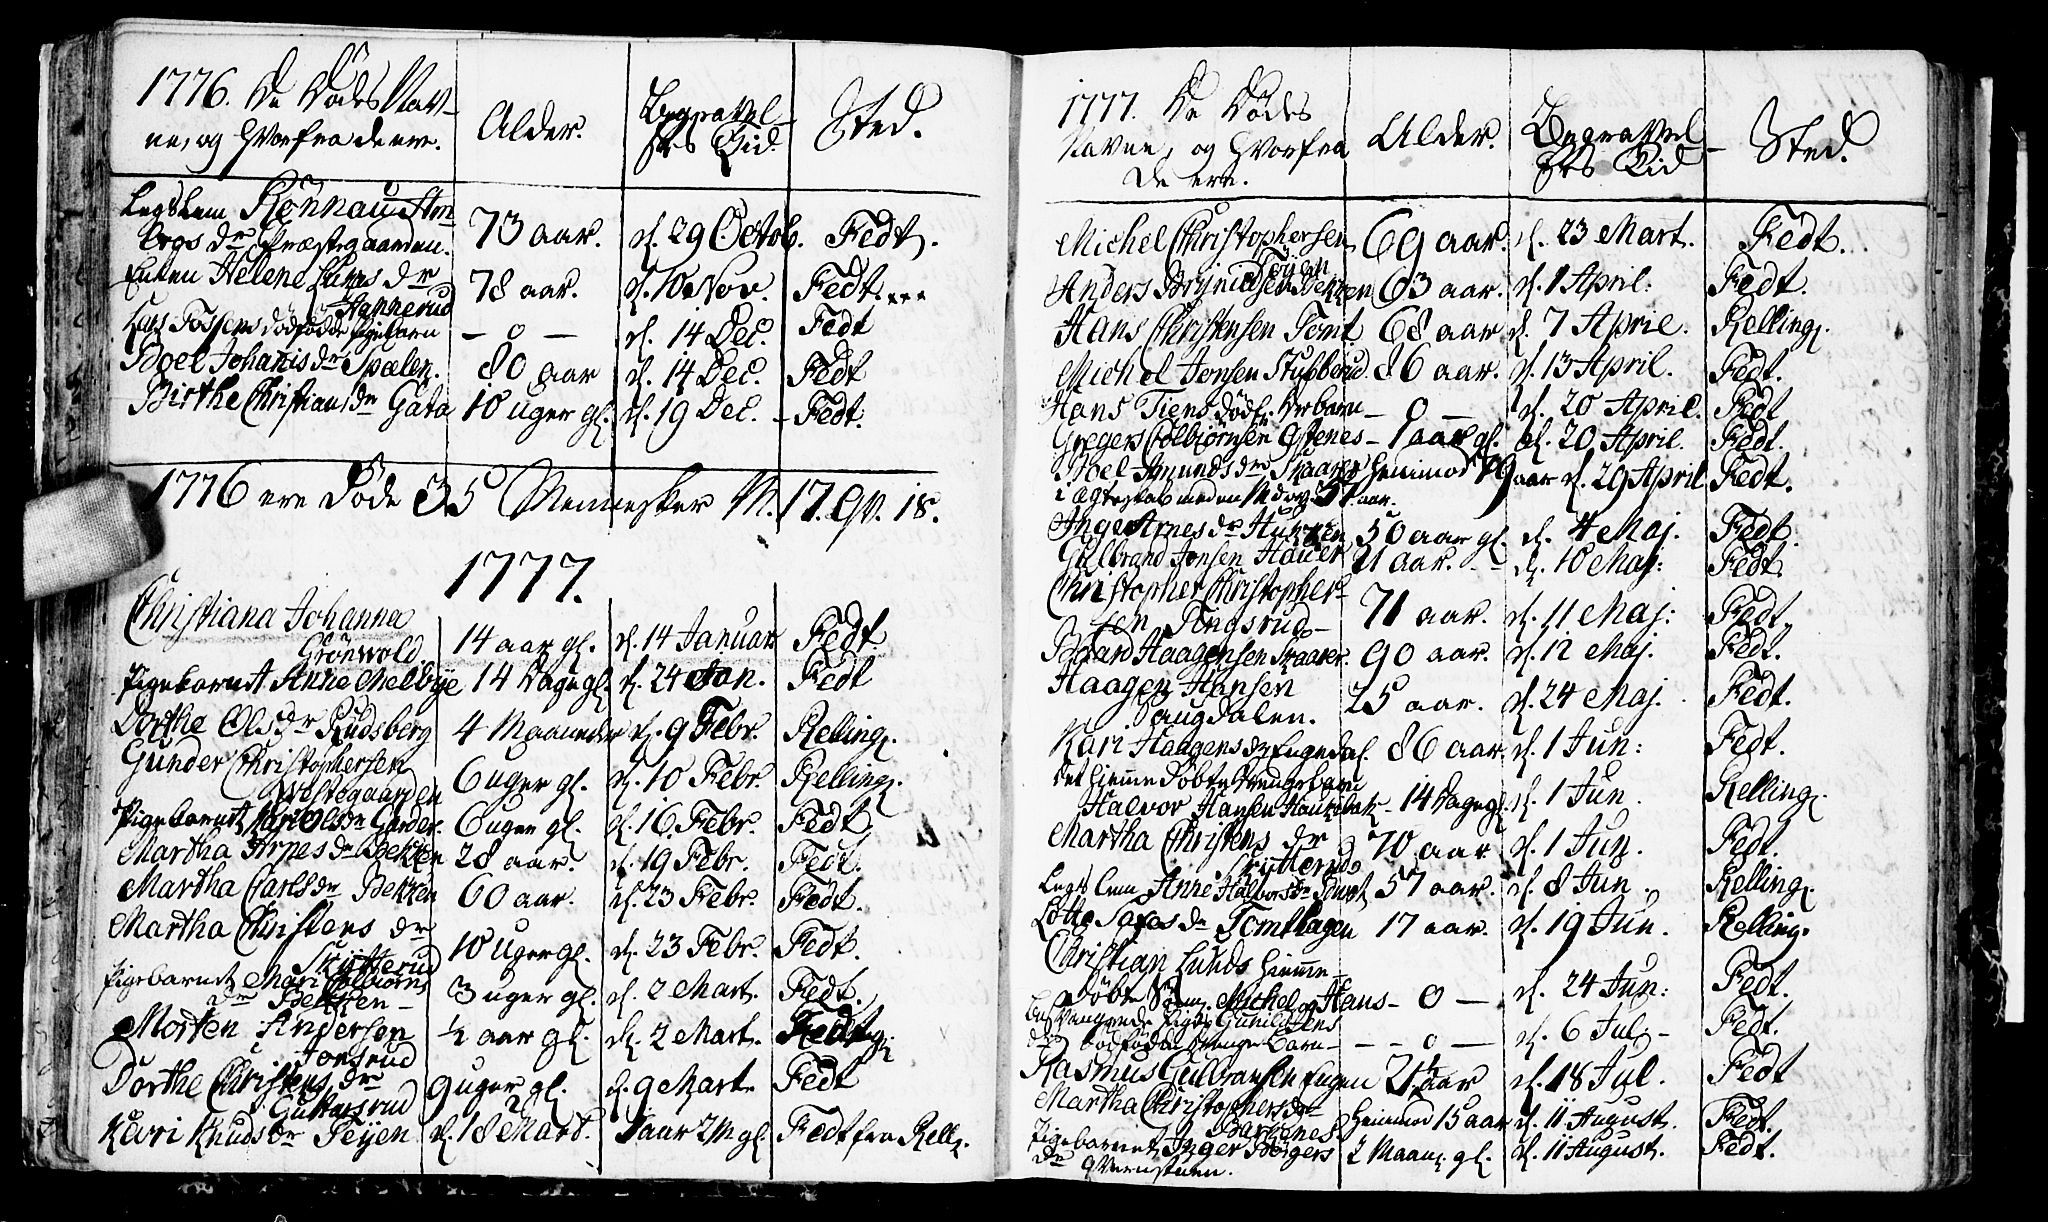 1776. De Dödes Nav-
ne, og Hvorfra de ere.
Alder.
Begravel-
ses Tid.
Sted.
Legslem Rönnau Am
bros dr Præstegaarden. 73 aar. d. 29 Octob. Fedt.
Enken Helene Lars dr
Hannerud 78 aar. d. 10 Nov. Fedt.
Lars Tossens dödfödde Pigebarn — 0 — d. 14 Dec. Fedt
Boel Johanis dr Spælen. 80 aar d. 14 Dec. Fedt
Birthe Christians dr Gata 10 uger gl. d. 19 Dec. - Fedt.
1776 ere Döde 35 Mennesker M. 17. Qv. 18.
1777.
Christiana Johanna
Grönwold 14 aar gl. d. 14 Januar Fedt.
Pigebarnet Anne Melbye 14 Dage gl. d. 24 Jan. Fedt
Dorthe Ols dr Rudsberg 4 Maaneder d. 9 Febr. Kelling.
Gunder Christophersen
Westegaarden 6 uger gl. d. 10 Febr. Kelling.
Pigebarnet Kari Ols dr Garder. 6 uger gl. d. 16. Febr. Fedt
Martha Arnes dr Bekken 28 aar. d. 19 Febr. Fedt.
Martha Carls dr Bekken 60 aar. d. 23 Febr. Fedt.
Martha Christens dr
Skytterud 10 Uger gl. d. 23 Febr. Fedt.
Pigebarnet Mari Colbiörns
dr Bekken - 3 uger gl. d. 2 Mart. Fedt.
Morten Andersen
Jonsrud ½ aar gl. d. 2 Mart. Fedt
Dorthe Christens dr
Guttersrud 9 uger gl. d. 9 Mart. Fedt
Kari Knuds dr Teyen d. 18 Mart. 1 aar 2 M gl. Fedt fra Kell.
1777. De Dödes
Navne, og Hvorfra
De ere.
Alder.
Begravel-
ses Tid
Sted.
Michel Christophersen
Töyen 69 aar. d. 23 Mart. Fedt.
Anders Brynildsen Bekken 63 aar. d. 1 April. Fedt.
Hans Christensen Tomt 68 aar d. 7 April. Kelling.
Michel Jonsen Stubberud. 86 aar. d. 13 April. Fedt.
Hans Tiens dödf. barn — 0 — d. 20 April. Fedt
Gregers Colbiörnsen Ostenes - 1 aar gl. d. 20 April. Fedt.
Boel Amunds dr Skaarer Henimod 79 aar d. 29 April Fedt.
i Ægteskab med en Mand 57 aar.
Inger Arnes dr Hucken 50 aar gl. d. 4 Maj. Fedt.
Gulbrand Jonsen Hauer 21 aar. - - d. 10 Maj: Fedt.
Christopher Christopher-
sen Tingsrud - 71 aar. d. 11 Maj: Fedt.
Baard Haagensen Skaarer. 90 aar. d. 12 Maj. Fedt.
Haagen Hansen
Haugdalen. 25 aar. d. 24 Maj. Fedt.
Kari Haagens dr Engedal. 86 aar. d. 1 Jun: Fedt.
Det hiemme döbte Drengebarn
Halvor Hansen Haukebæk - 14 Dage gl. d. 1 Jun. Kelling.
Martha Christens dr
Skytterud 70 aar d. 1 Jun. Fedt.
Legs lem Anne Halvors dr Tomt 57 aar. d. 8 Jun. Kelling.
Lotte Tofas dr Tomthagen 17 aar. d. 19 Jun. Kelling.
Christian Lunds hiemme-
döbte Sön, Michel og Hans - 0 — d. 24 Jun: Fedt.
Besvangrede Pige Gunild Jens
dr dödfödde Drenge Barn - - - 0 - d. 6 Jul - Fedt.
Rasmus Gulbransen Engen 21½ aar d. 18 Jul. Fedt
Martha Christophers dr
Barkenes. Henimod 15 aar d. 11 August. Fedt.
Pigebarnet Inger Börgers
dr Qvernstuen. 2 Maan. gl. d. 11 August. Fedt.